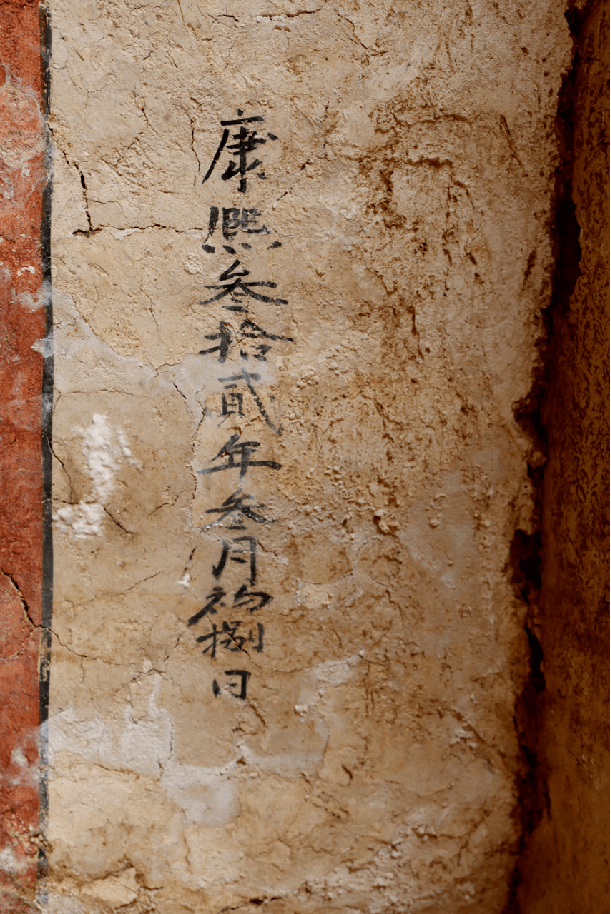 康熙叁拾貳年叁月初捌日